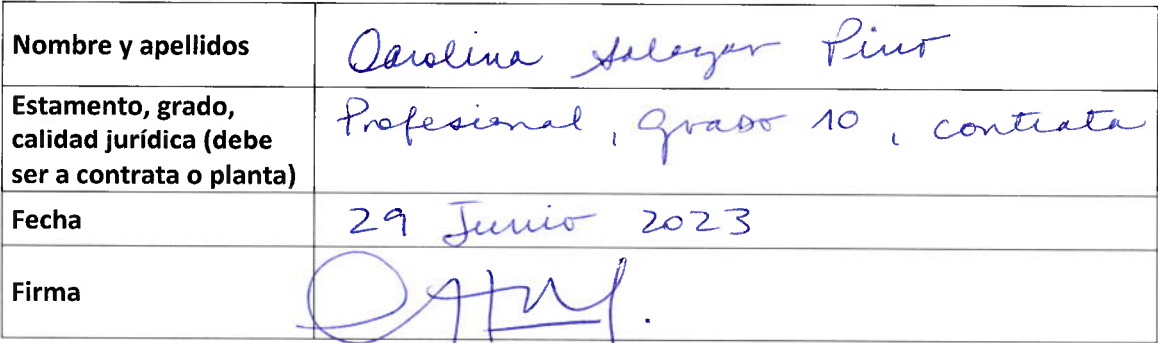 Nombre y apellidos
Carolina Salazar Pino
Estamento, grado,
calidad jurídica (debe
ser a contrata o planta)
Profesional, grado 10, contrata
Fecha
29 Junio 2023
Firma